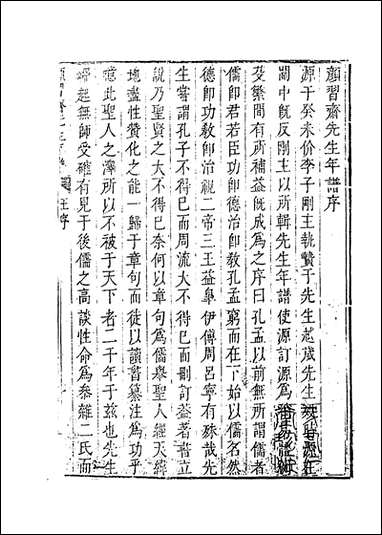 顏習齋先生年譜序
源于癸未价李子剛主執贄于先生越歲先生
閩中旣反剛主以所輯先生年譜使源訂源爲
芟繁間有所補益旣成爲之序曰孔孟以前無所謂儒者
儒卽君若臣功卽德治卽敎孔孟窮而在下始以儒名然
德卽功敎卽治視二帝三王益臯伊傅周呂寧有殊哉先
生嘗謂孔子不得已而周流大不得已而刪訂益著書立
說乃聖賢之大不得已奈何以章句爲儒舉聖人經天緯
地盡性贊化之能一歸于章句而徒以讀書纂注爲功乎
噫此聖人之澤所以不被于天下者二千年于兹也先生
崛起無師受確有見于後儒之高談性命爲參雜二氏而
王序